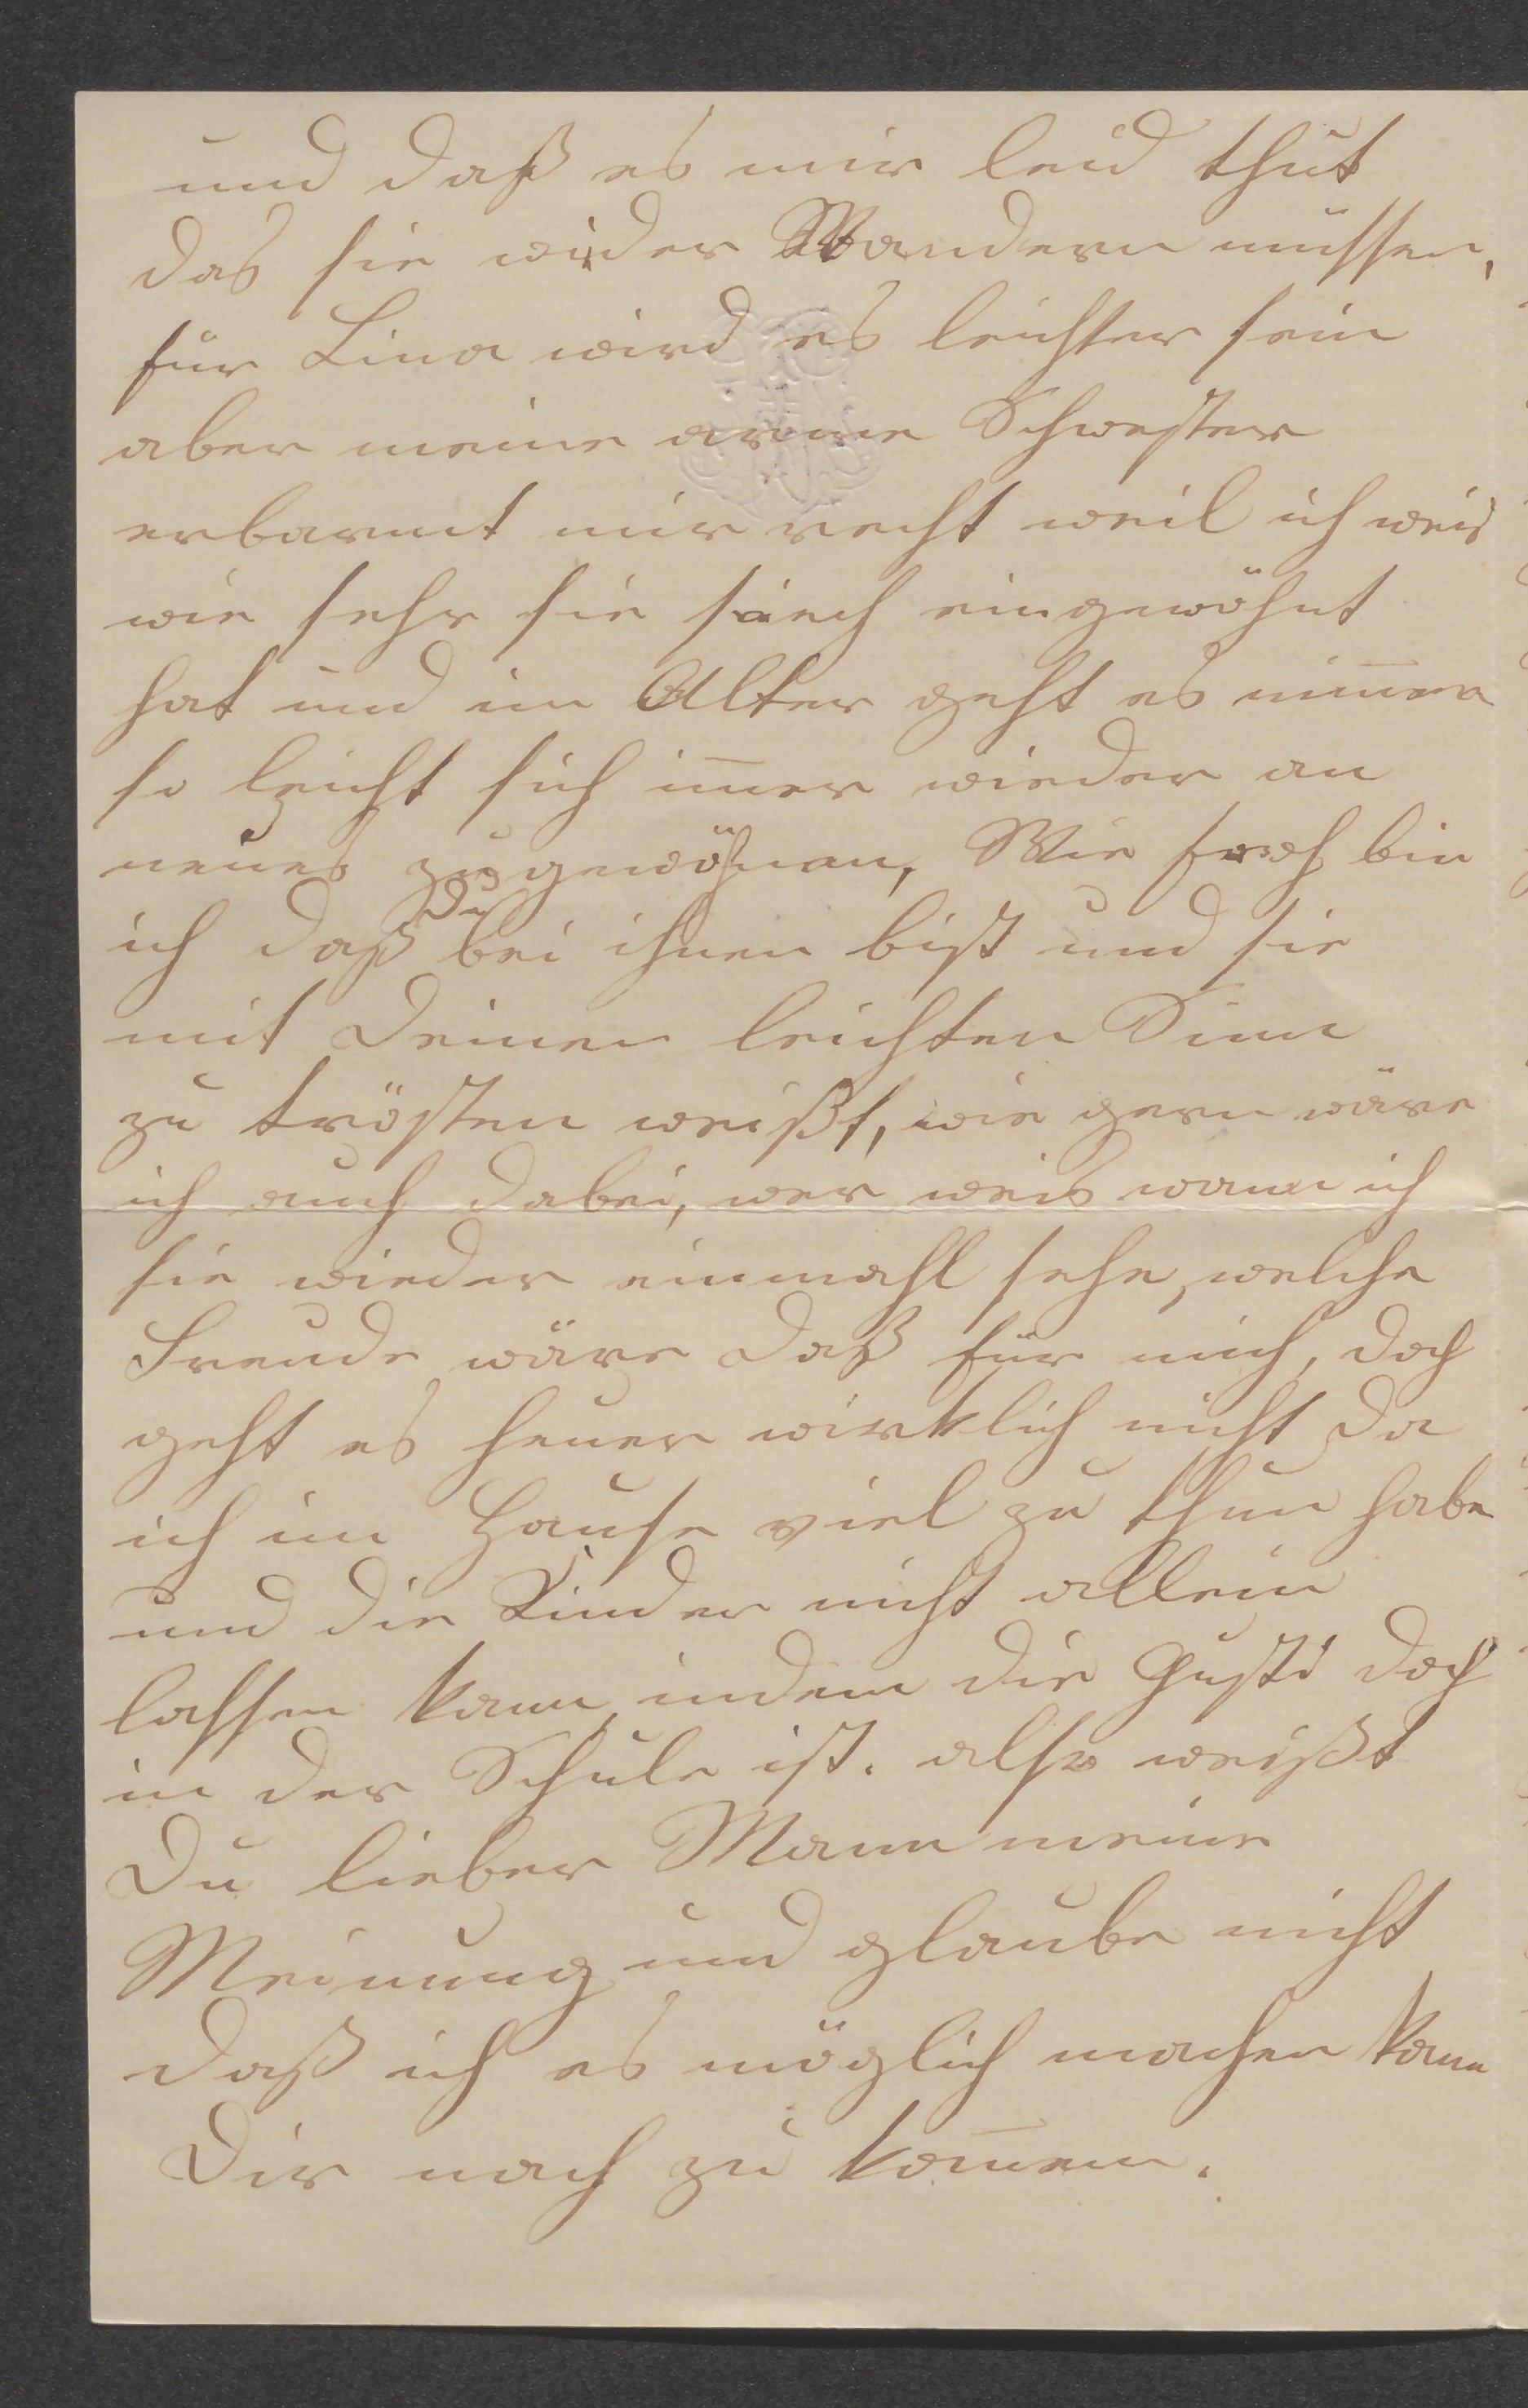 und daß es mir leid thut
das sie wider Wandern müssen,
für Lina wird es leichter sein
aber meine arme Schwester
erbarmt mir recht weil ich weis
wie sehr sie siech eingewöhnt
hat und im Alter geht es nim̅er
so leicht sich im̅er wieder an
neues zugewöhnen, Wie froh bin
ich daß du bei ihnen bist und sie
mit Deinen leichten Sinn
zu trösten weißt, wie gern wäre
ich auch dabei, wer weis wann ich
sie wieder einmahl sehe, welche
Freude wäre daß für mich, doch
geht es heuer wirklich nicht da
ich im Hause viel zu thun habe
und die Kinder nicht allein
lassen kann, indem die Gusti doch
in der Schule ist. also weißt
Du lieber Mann meine
Meinung und glaube nicht
daß ich es möglich machen kann
Dir nach zu kom̅en.